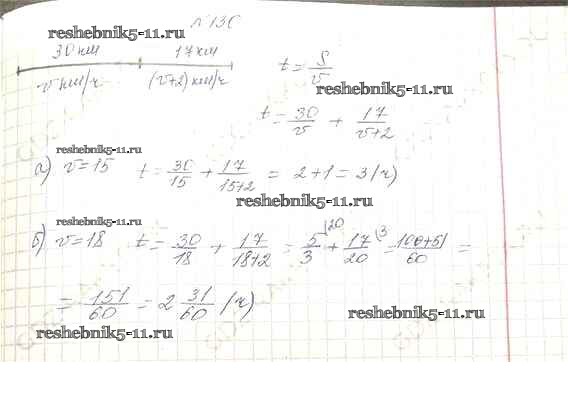 №130
reshebnik5-11.ru
30 км 17 км
v км/ч (v+2) км/ч
t = S/v
reshebnik5-11.ru
reshebnik5-11.ru
t = 30/v + 17/(v+2)
reshebnik5-11.ru
reshebnik5-11.ru
а) v=15 t = 30/15 + 17/(15+2) = 2+1 = 3 (ч)
reshebnik5-11.ru
reshebnik5-11.ru
б) v=18 t = 30/18 + 17/(18+2) = 5/3 |20 + 17/20 |3 = (100+51)/60 =
= 151/60 = 2 31/60 (ч)
reshebnik5-11.ru
reshebnik5-11.ru